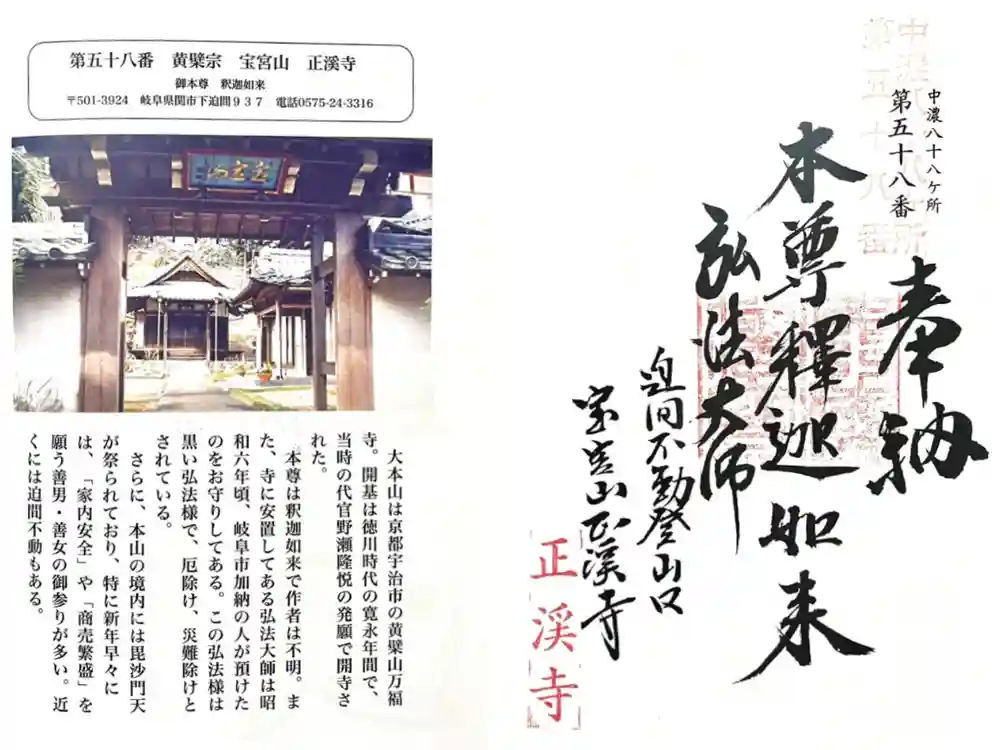 第五十八番　黄檗宗　宝宮山　正溪寺
御本尊　釈迦如来
〒501-3924　岐阜県関市下迫間９３７　電話0575-24-3316
大本山は京都宇治市の黄檗山万福
寺。開基は徳川時代の寛永年間で、
当時の代官野瀬隆悦の発願で開寺さ
れた。
本尊は釈迦如来で作者は不明。ま
た、寺に安置してある弘法大師は昭
和六年頃、岐阜市加納の人が預けた
のをお守りしてある。この弘法様は
黒い弘法様で、厄除け、災難除けと
されている。
さらに、本山の境内には毘沙門天
が祭られており、特に新年早々に
は、「家内安全」や「商売繁盛」を
願う善男・善女の御参りが多い。近
くには迫間不動もある。
中濃八十八ヶ所
第五十八番
奉納
本尊釋迦如来
弘法大師
迫间不動登山口
宝宮山正溪寺
正溪寺